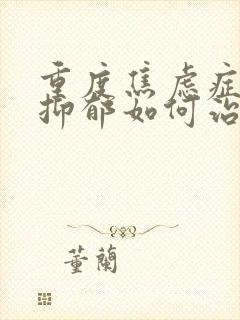 重度焦虑症
抑郁如何治
董蘭